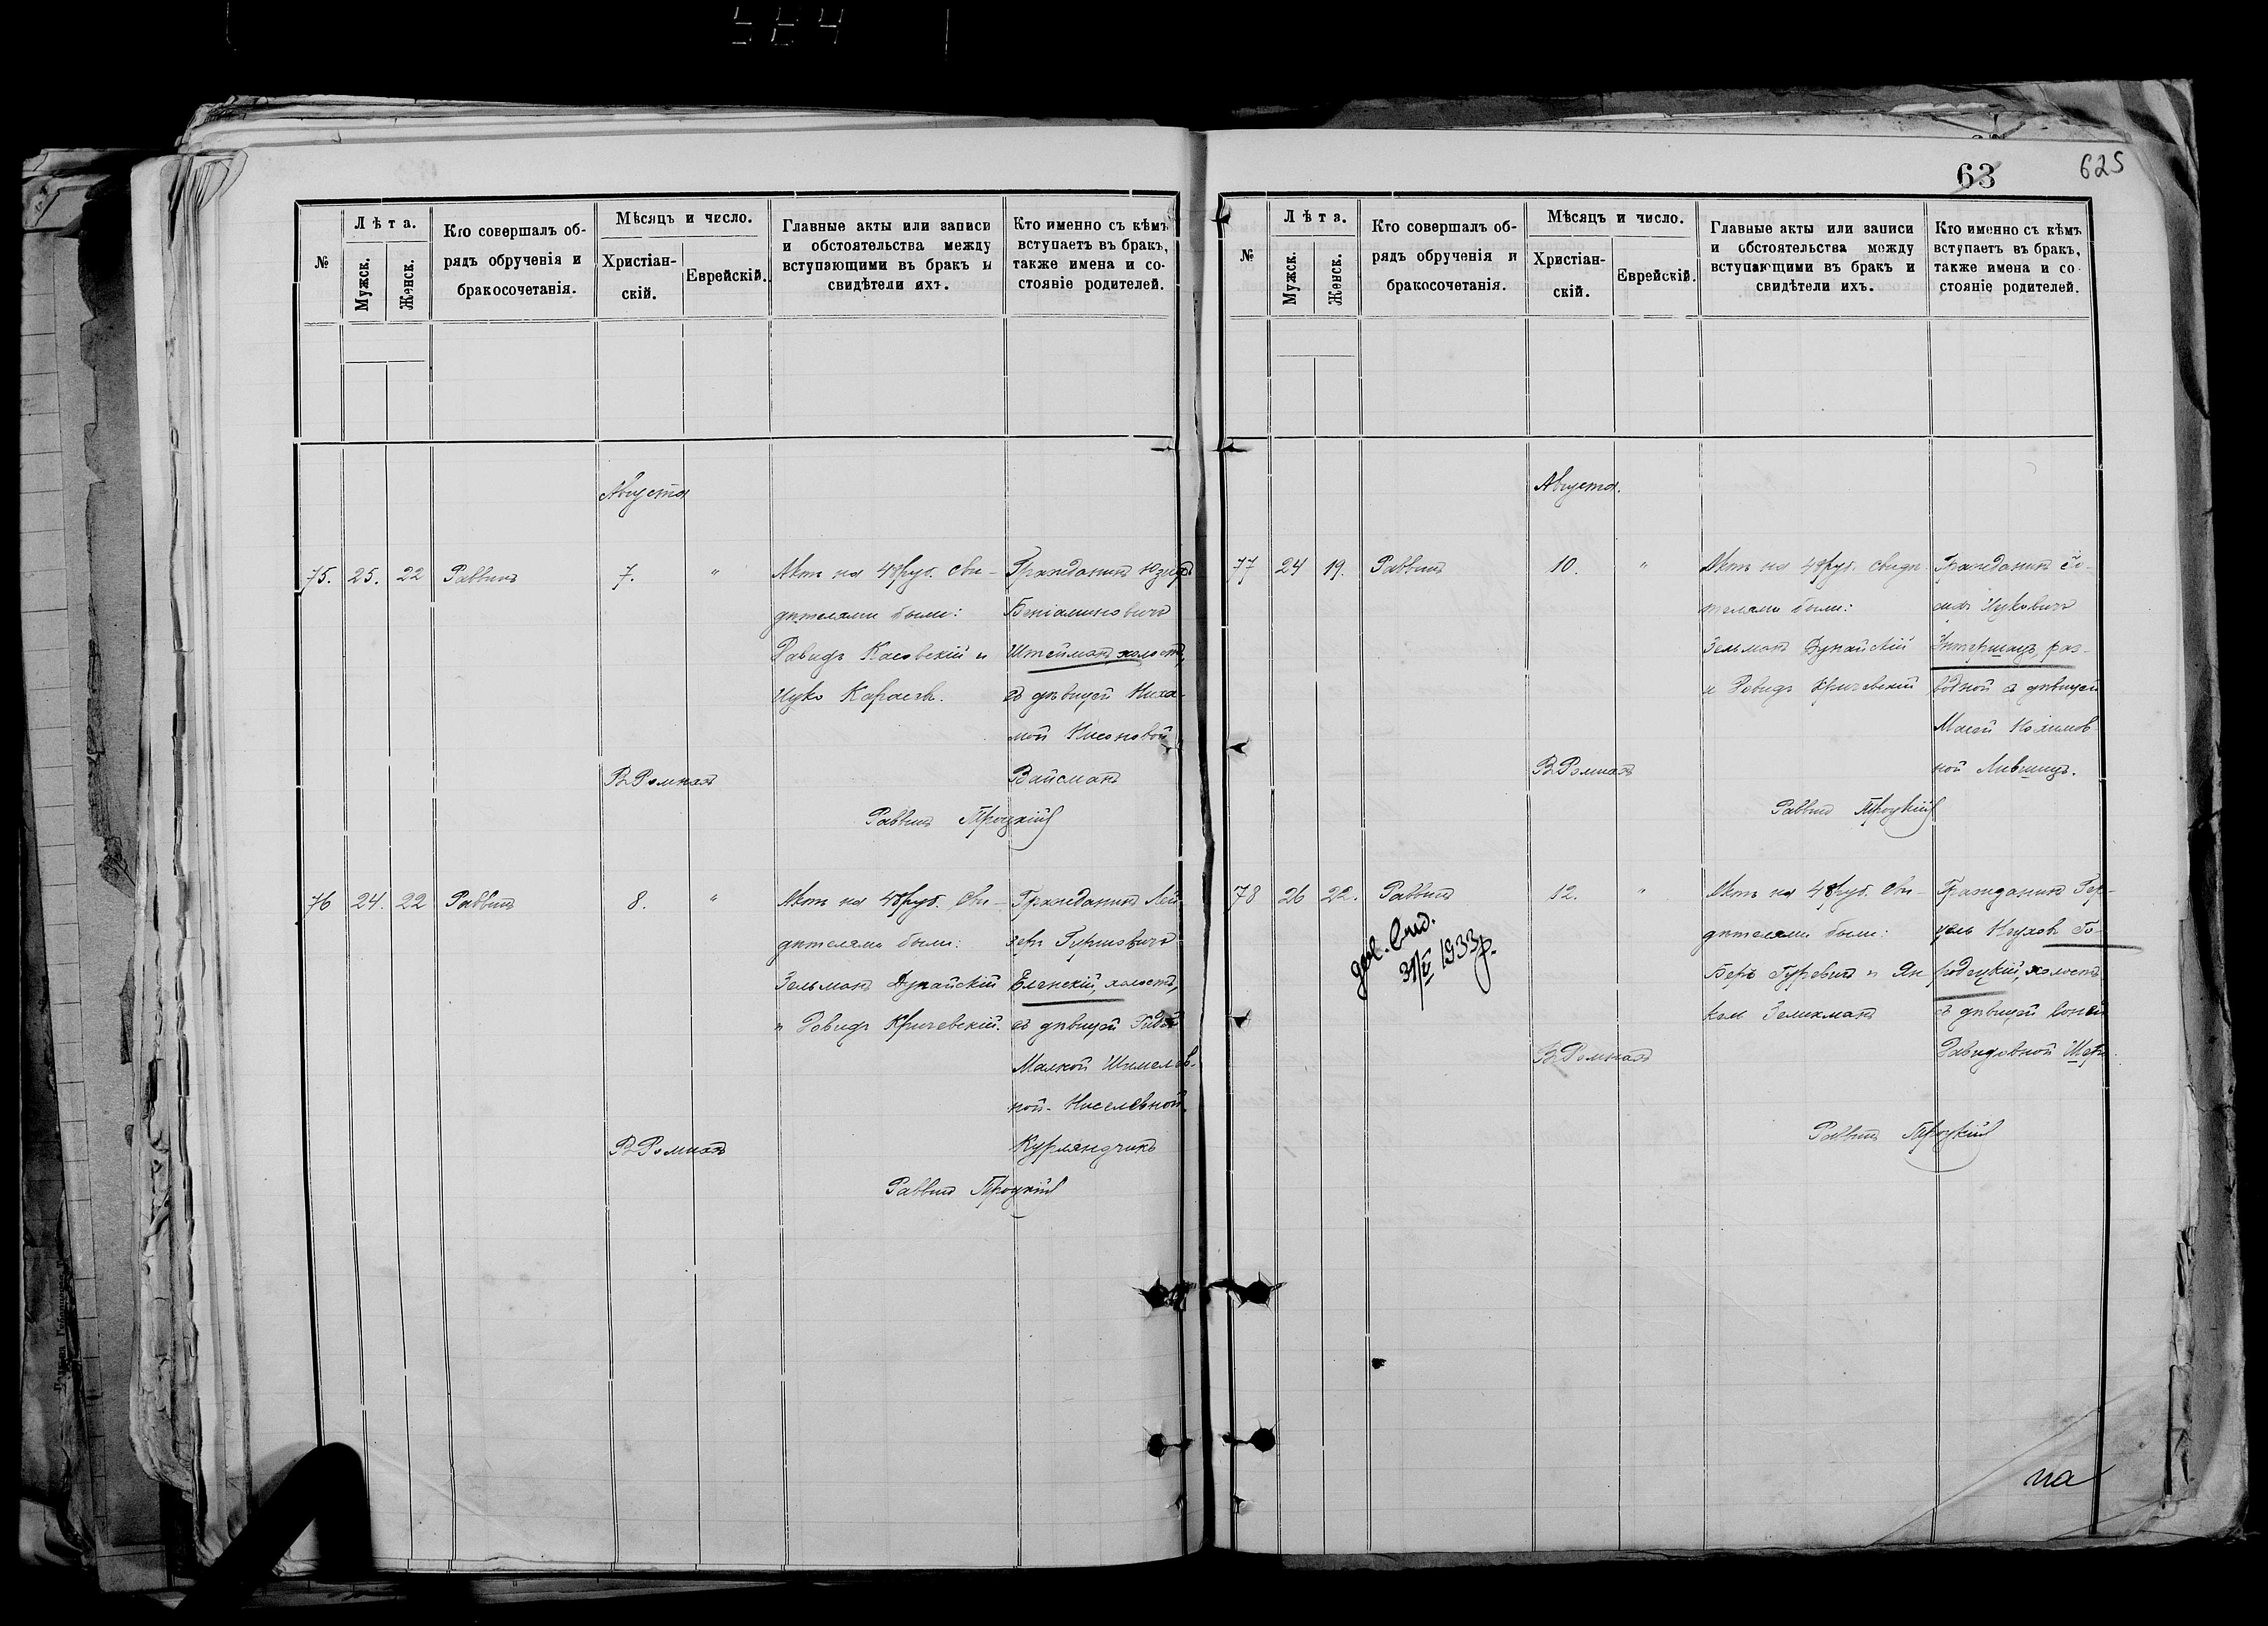 564
№
Лѣта.
Мужск.
Женск.
Кто совершалъ об-
рядъ обрученія и
бракосочетанія.
Мѣсяцъ и число.
Христіан-
скій.
Еврейскій.
Главные акты или записи
и обстоятельства между
вступающими въ бракъ и
свидѣтели ихъ.
Кто именно съ кѣмъ
вступаетъ въ бракъ,
также имена и со-
стояніе родителей.
Августа
75. 25. 22 Раввинъ 7. "
Актъ на 48 руб. Сви-
дѣтелями были:
Давидъ Касовскій и
Ицко Карасикъ.
Гражданинъ
Беніаминовичъ
Штейманъ, холостъ,
съ дѣвицей Неха-
мой
Вайсманъ
Въ Ромнахъ
Раввинъ Троцкій
76 24. 22 Раввинъ 8. "
Актъ на 48 руб. Сви-
дѣтелями были:
Зельманъ Дунайскій
и Давидъ Кричевскій.
Гражданинъ Лей-
зеръ Гиршовичъ
Еленскій, холостъ,
съ дѣвицей
Малкой Шмелев-
ной-Киселевной
Курляндчикъ
Въ Ромнахъ
Раввинъ Троцкій
63
625
№
Лѣта.
Мужск.
Женск.
Кто совершалъ об-
рядъ обрученія и
бракосочетанія.
Мѣсяцъ и число.
Христіан-
скій.
Еврейскій.
Главные акты или записи
и обстоятельства между
вступающими въ бракъ и
свидѣтели ихъ.
Кто именно съ кѣмъ
вступаетъ въ бракъ,
также имена и со-
стояніе родителей.
Августа.
77 24 19. Раввинъ 10. "
Актъ на 48 руб. Свидѣ-
телями были:
Зельманъ Дунайскій
и Давидъ Кричевскій
Гражданинъ Іо-
сифъ Ицковичъ
раз-
водной съ дѣвицей
Масей
ной Лившицъ.
Въ Ромнахъ
Раввинъ Троцкій
78 26 22. Раввинъ 12. "
Актъ на 48 руб. Сви-
дѣтелями были:
Беръ Гуревичъ и Ян-
кель Зеликманъ
Гражданинъ Гер-
цель Нухов. Го-
родецкій, холостъ
съ дѣвицей Соней
Давидовной
1933 р.
Въ Ромнахъ
Раввинъ Троцкій
на